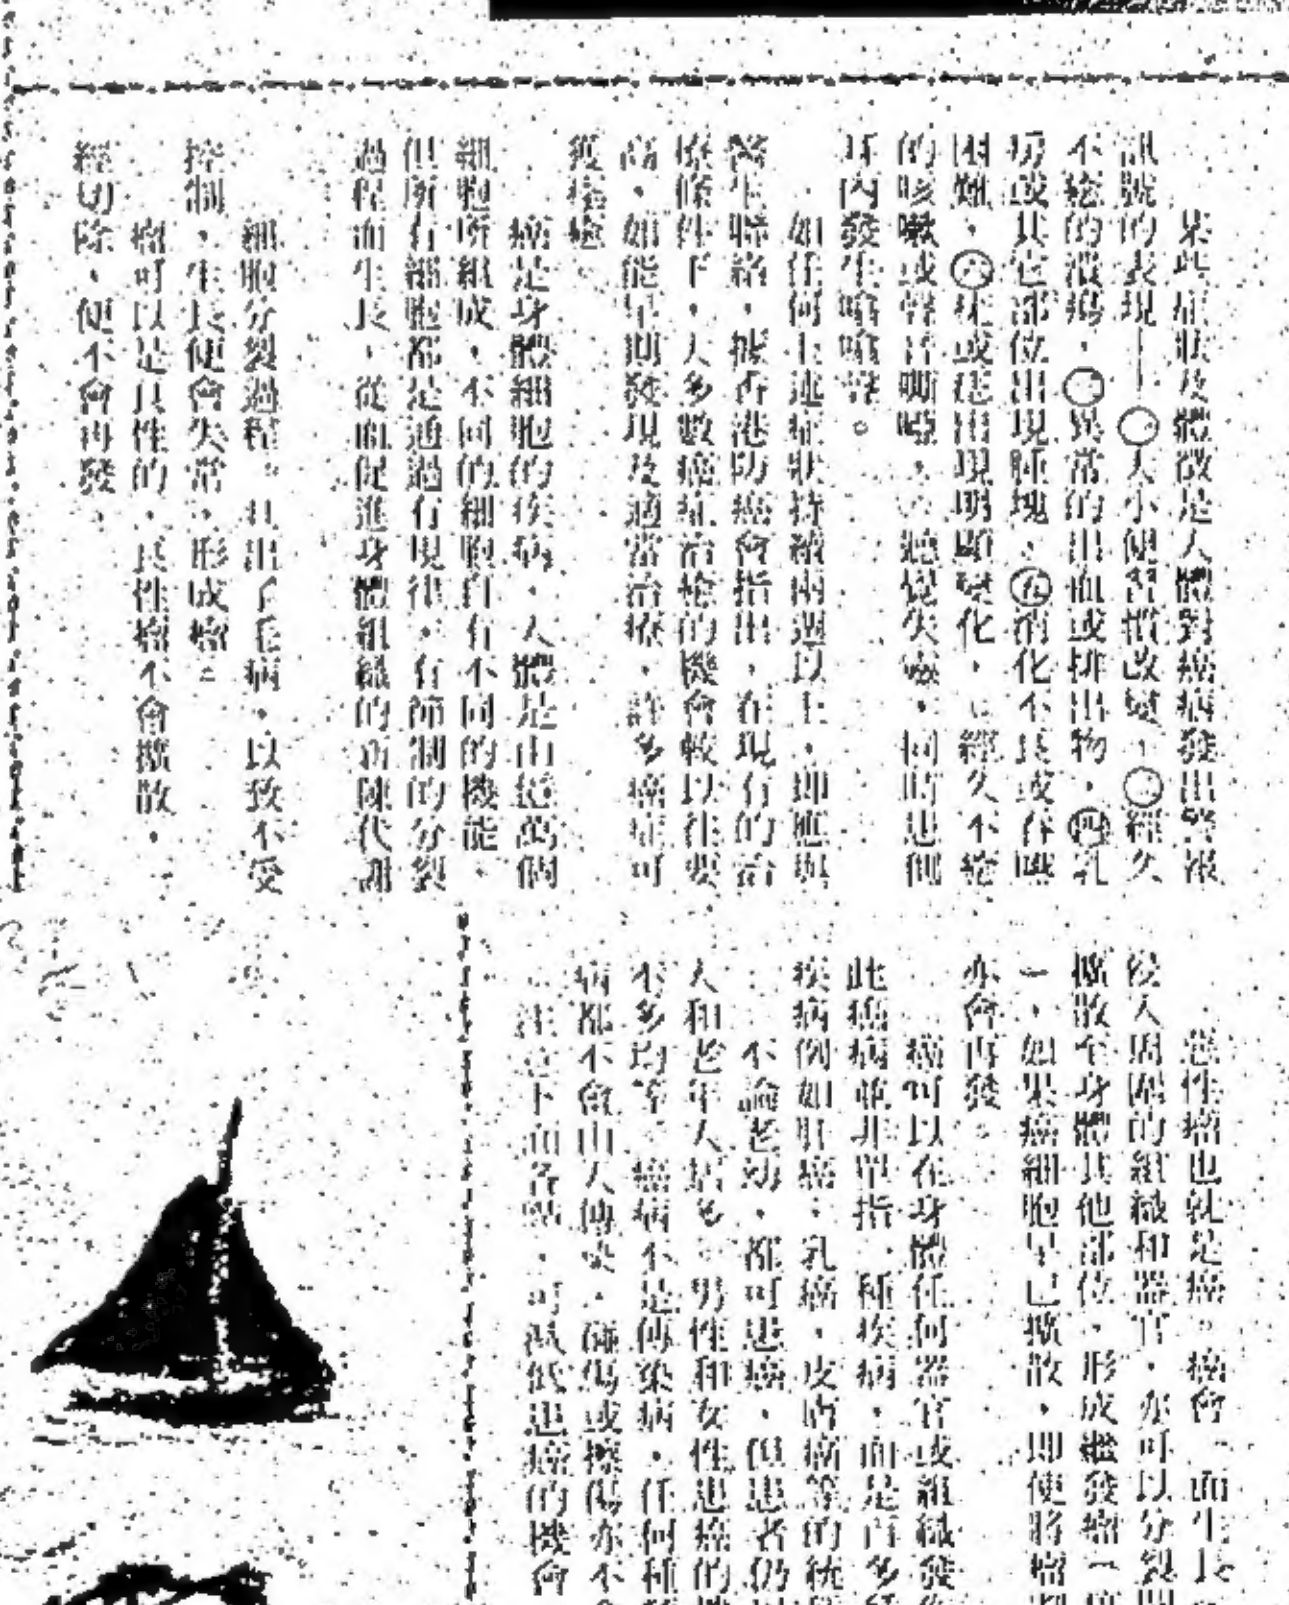 某些症狀及體徵是人體對癌病發出警報
訊號的表現——㊀大小便習慣改變,㊁經久
不癒的潰瘍,㊂異常的出血或排出物,㊃乳
房或其它部位出現腫塊,㊄消化不良或吞嚥
困難,㊅疣或痣出現明顯變化,㊆經久不癒
的咳嗽或聲音嘶啞,聽覺失靈,同時患側
耳內發生嗡嗡聲。
如任何上述症狀持續兩週以上,即應與
醫生聯絡,據香港防癌會指出,在現有的治
療條件下,大多數癌症治癒的機會較以往要
高,如能早期發現及適當治療,許多癌症可
獲痊癒。
癌是身體細胞的疾病,人體是由億萬個
細胞所組成,不同的細胞自有不同的機能,
但所有細胞都是通過有規律,有節制的分裂
過程而生長,從而促進身體組織的新陳代謝
細胞分裂過程。出了毛病,以致不受
控制,生長便會失常,形成瘤。
瘤可以是良性的,良性瘤不會擴散,
經切除,便不會再發,
惡性瘤也就是癌。癌會一面生長
侵入周圍的組織和器官,亦可以分裂
擴散至身體其他部位,形成繼發瘤
一,如果癌細胞早已擴散,即使將瘤
亦會再發。
癌可以在身體任何器官或組織發
此癌病並非單指一種疾病,而是百多
疾病例如肝癌,乳癌,皮膚癌等的統
不論老幼,都可患癌,但患者仍
人和老年人居多。男性和女性患癌的
不多均等。癌病不是傳染病,任何種
病都不會由人傳染,碰傷或擦傷亦不
注意下面各點,可減低患癌的機會